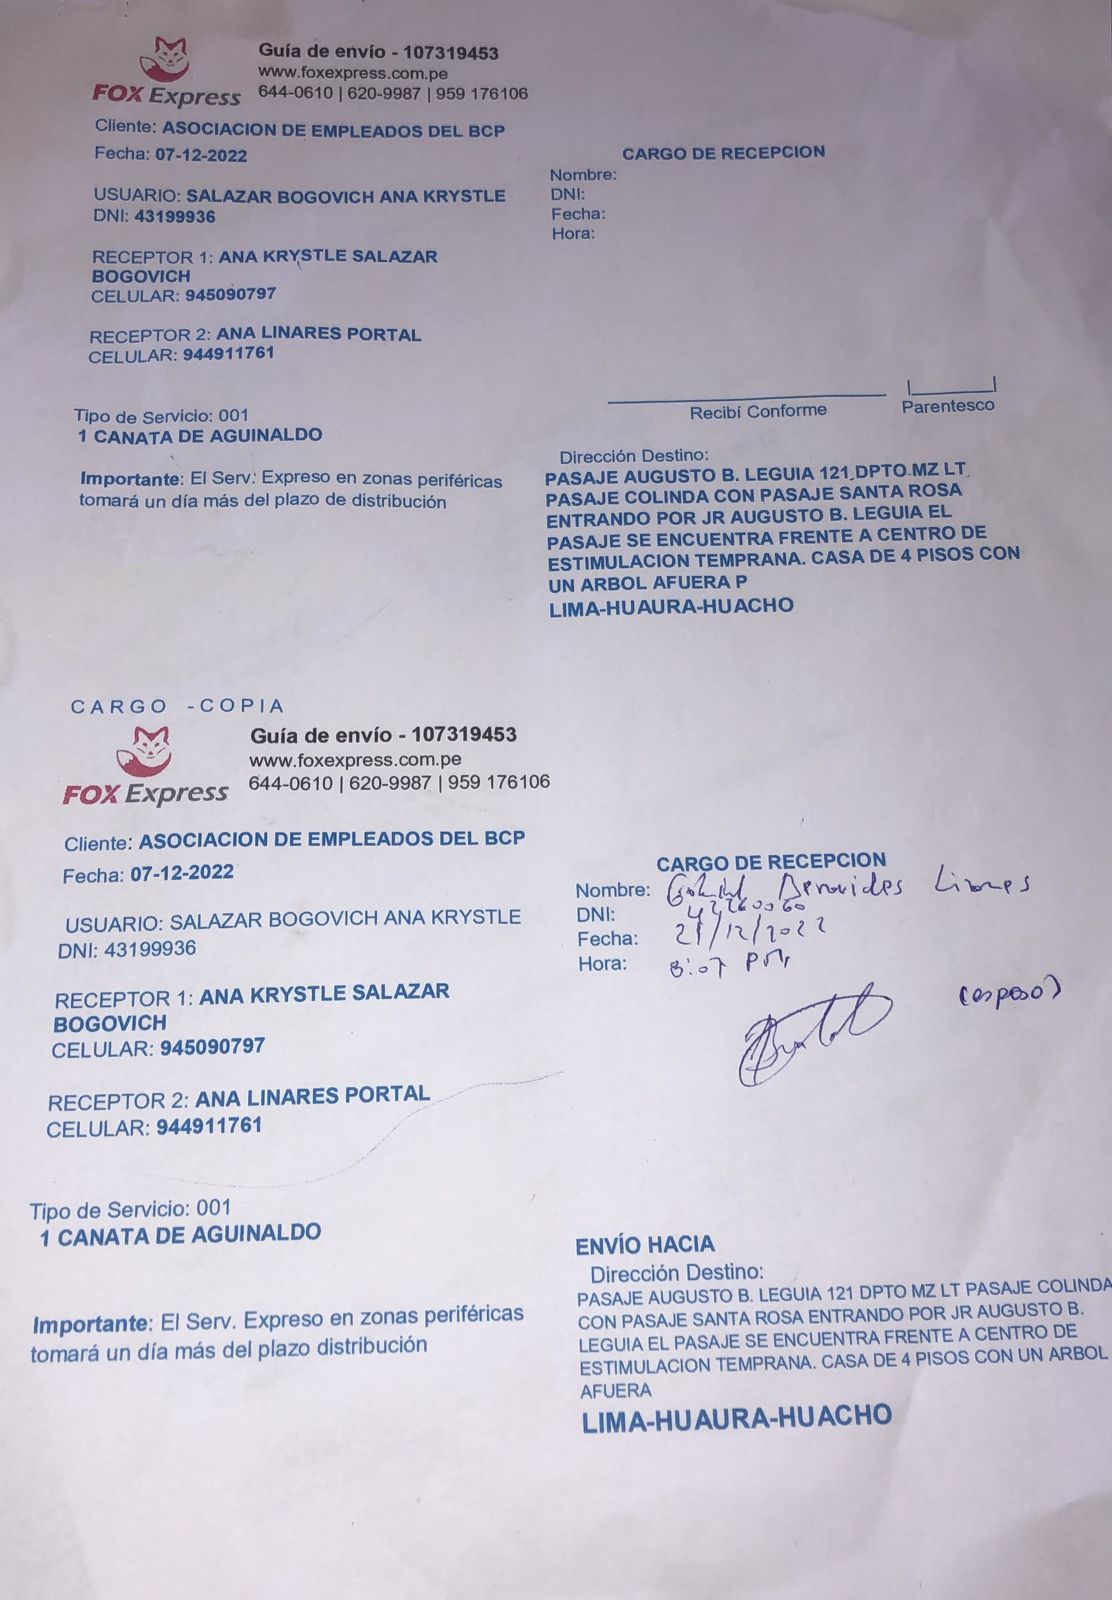 FOX Express
Guía de envío - 107319453
www.foxexpress.com.pe
644-0610 | 620-9987 | 959 176106
Cliente: ASOCIACION DE EMPLEADOS DEL BCP
Fecha: 07-12-2022
USUARIO: SALAZAR BOGOVICH ANA KRYSTLE
DNI: 43199936
RECEPTOR 1: ANA KRYSTLE SALAZAR
BOGOVICH
CELULAR: 945090797
RECEPTOR 2: ANA LINARES PORTAL
CELULAR: 944911761
Tipo de Servicio: 001
1 CANATA DE AGUINALDO
Importante: El Serv. Expreso en zonas periféricas
tomará un día más del plazo de distribución
CARGO DE RECEPCION
Nombre:
DNI:
Fecha:
Hora:
Recibí Conforme
Parentesco
Dirección Destino:
PASAJE AUGUSTO B. LEGUIA 121 DPTO MZ LT
PASAJE COLINDA CON PASAJE SANTA ROSA
ENTRANDO POR JR AUGUSTO B. LEGUIA EL
PASAJE SE ENCUENTRA FRENTE A CENTRO DE
ESTIMULACION TEMPRANA. CASA DE 4 PISOS CON
UN ARBOL AFUERA P
LIMA-HUAURA-HUACHO
CARGO -COPIA
FOX Express
Guía de envío - 107319453
www.foxexpress.com.pe
644-0610 | 620-9987 | 959 176106
Cliente: ASOCIACION DE EMPLEADOS DEL BCP
Fecha: 07-12-2022
USUARIO: SALAZAR BOGOVICH ANA KRYSTLE
DNI: 43199936
RECEPTOR 1: ANA KRYSTLE SALAZAR
BOGOVICH
CELULAR: 945090797
RECEPTOR 2: ANA LINARES PORTAL
CELULAR: 944911761
Tipo de Servicio: 001
1 CANATA DE AGUINALDO
Importante: El Serv. Expreso en zonas periféricas
tomará un día más del plazo distribución
CARGO DE RECEPCION
Nombre:
DNI:
Fecha: 21/12/2022
Hora: 3:07 PM
(esposo)
ENVÍO HACIA
Dirección Destino:
PASAJE AUGUSTO B. LEGUIA 121 DPTO MZ LT PASAJE COLINDA
CON PASAJE SANTA ROSA ENTRANDO POR JR AUGUSTO B.
LEGUIA EL PASAJE SE ENCUENTRA FRENTE A CENTRO DE
ESTIMULACION TEMPRANA. CASA DE 4 PISOS CON UN ARBOL
AFUERA
LIMA-HUAURA-HUACHO